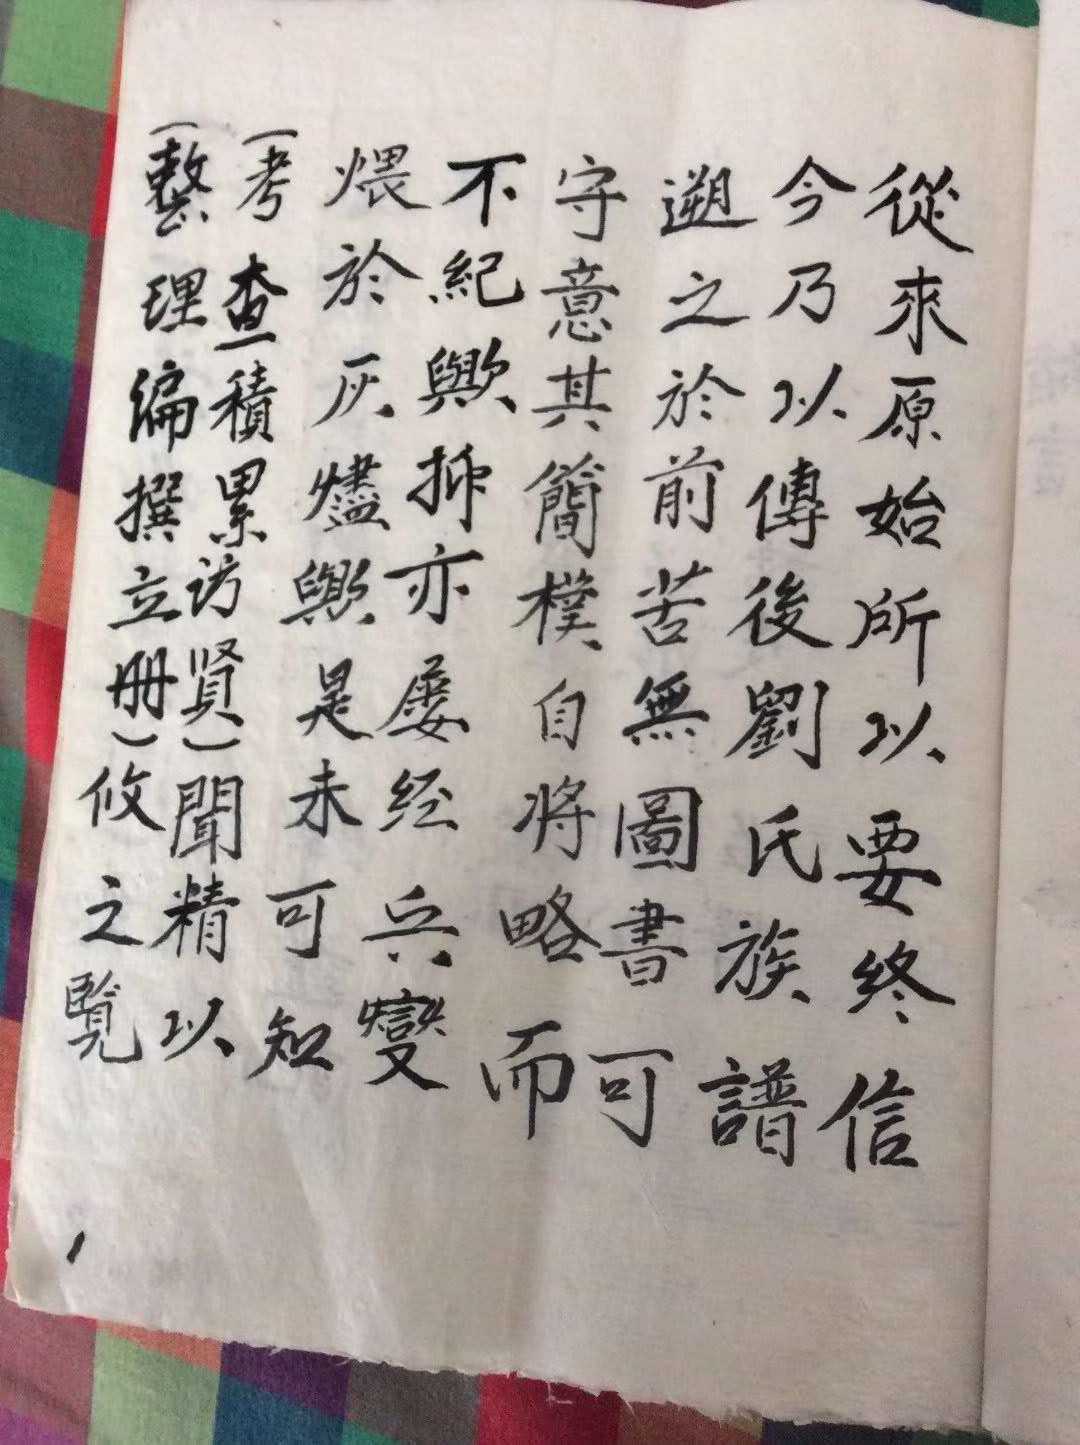 從來原始所以要終信
今乃以傳後劉氏族譜
遡之於前苦無圖書可
守意其簡樸自将略而
不紀歟抑亦屡经兵變
煨於灰燼歟是未可知
(考查積累访賢)聞精以
(整理编撰立册)攸之覧
1